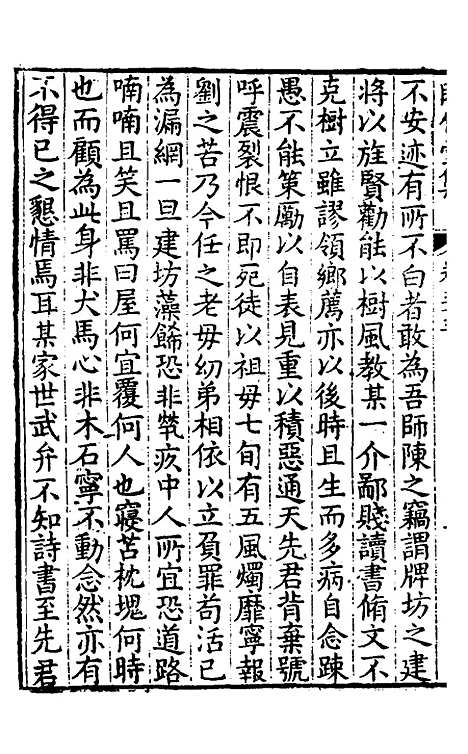 不安迹有所不白者敢為吾師陳之竊謂牌坊之建
將以旌賢勸能以樹風教某一介鄙賤讀書脩文不
克樹立雖謬領鄉薦亦以後時且生而多病自念踈
愚不能策勵以自表見重以積惡通天先君背棄號
呼震裂恨不即死徒以祖毋七旬有五風燭靡寧報
劉之苦乃今任之老毋㓜弟相依以立負罪苟活已
為漏網一旦建坊藻餙恐非煢疚中人所宜恐道路
喃喃且笑且罵曰屋何宜覆何人也寢苫枕塊何時
也而顧為此身非犬馬心非木石寧不動念然亦有
不得已之懇情焉耳某家世武弁不知詩書至先君